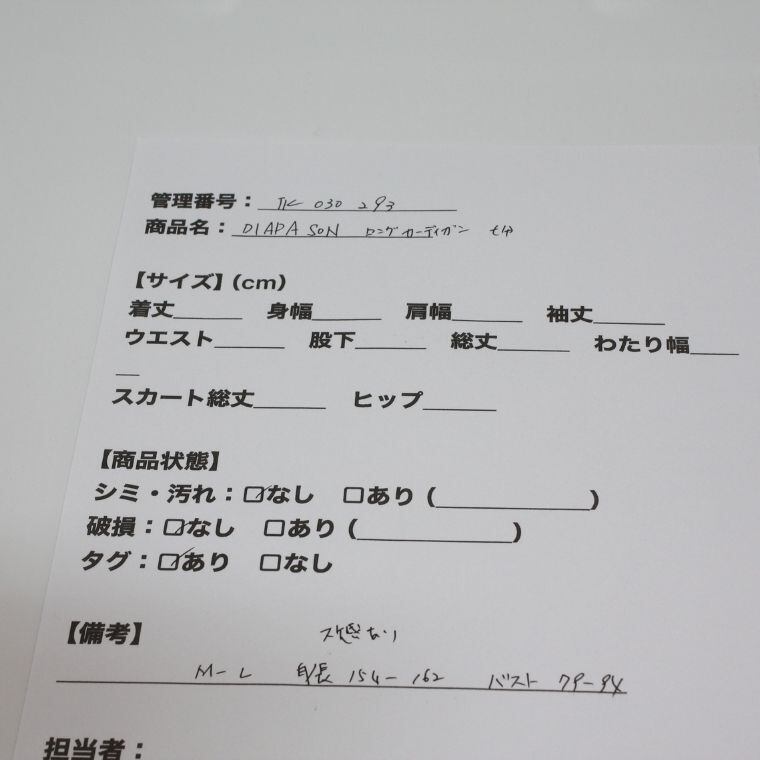 管理番号： TK 030 293
商品名： DIAPASON ロングカーディガン 七分
【サイズ】(cm)
着丈______ 身幅______ 肩幅______ 袖丈______
ウエスト______ 股下______ 総丈______ わたり幅____
__
スカート総丈______ ヒップ______
【商品状態】
シミ・汚れ：☑なし □あり (______________)
破損：☑なし □あり (______________)
タグ：☑あり □なし
【備考】
M-L 身長 154-162 バスト 79-94
担当者：